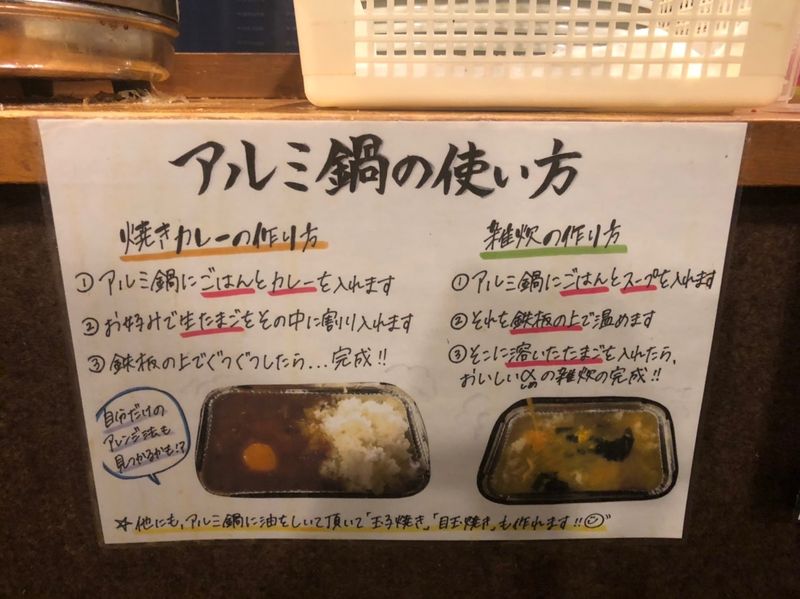 アルミ鍋の使い方
焼きカレーの作り方
① アルミ鍋にごはんとカレーを入れます
② お好みで生たまごをその中に割り入れます
③ 鉄板の上でぐつぐつしたら...完成!!
自分だけの
アレンジ法も
見つかるかも!?
雑炊の作り方
① アルミ鍋にごはんとスープを入れます
② それを鉄板の上で温めます
③ そこに溶いたたまごを入れたら、
おいしい〆の雑炊の完成!!
しめ
☆ 他にも、アルミ鍋に油をしいて頂いて「玉子焼き」「目玉焼き」も作れます!!